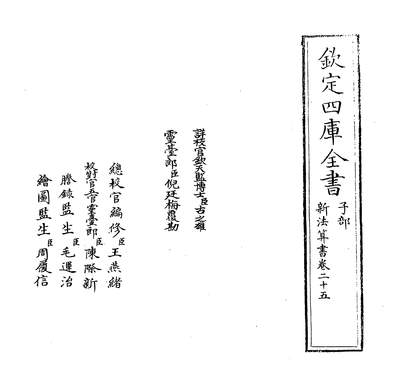 欽定四庫全書
子部
新法算書卷二十五
詳校官欽天監博士臣古之瓊
靈臺郎臣倪廷梅覆勘
總校官編修臣王燕緒
校對官五官靈臺郎臣陳際新
謄錄監生臣毛運治
繪圖監生臣周履信